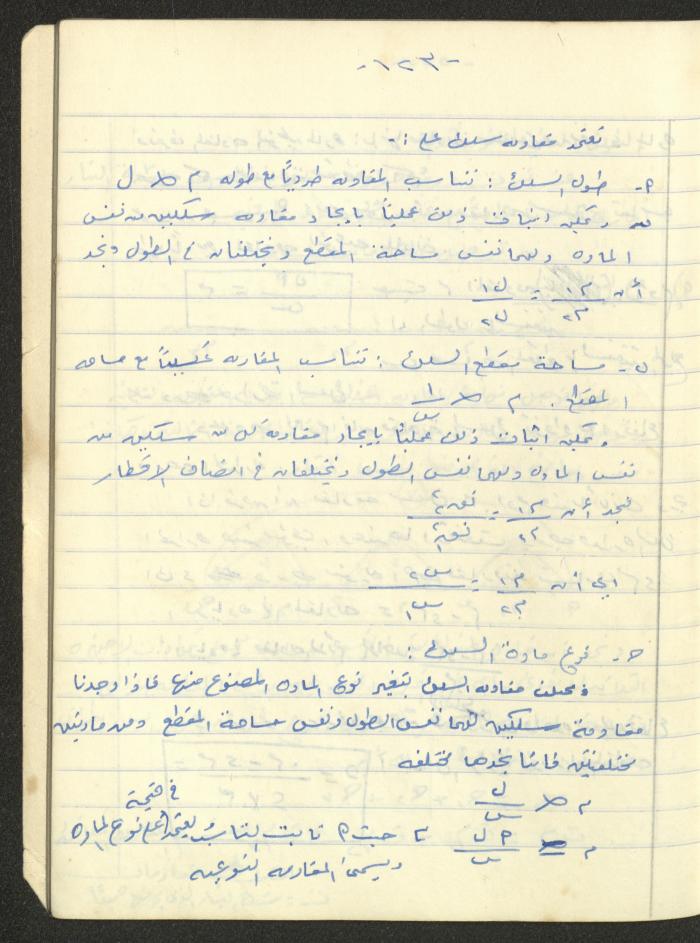 -١٢٣-
تعتمد مقاومة سلك على :-
أ- طول السلك : تتناسب المقاومة طردياً مع طوله م ∝ ل
ويمكن اثبات ذلك عملياً بإيجاد مقاومة سلكين من نفس
المادة ولهما نفس مساحة المقطع ويختلفان في الطول ونجد
أن م١/م٢ = ل١/ل٢
ب- مساحة مقطع السلك : تتناسب المقاومة عكسياً مع مساحة
المقطع . م ∝ ١/س
ويمكن اثبات ذلك عملياً بإيجاد مقاومة كل من سلكين من
نفس المادة ولهما نفس الطول ويختلفان في انصاف الاقطار
فنجد أن م١/م٢ = نق٢²/نق١²
اي أن م١/م٢ = س٢/س١
ح- نوع مادة السلك :
وتختلف مقاومة السلك بتغير نوع المادة المصنوع منها فاذا وجدنا
مقاومة سلكين لهما نفس الطول ونفس مساحة المقطع ومن مادتين
مختلفتين فاننا نجدها مختلفة
م ∝ ل/س
م = أ ل/س ، حيث أ ثابت التناسب يعتمد في قيمته على نوع المادة
ويسمى المقاومة النوعية